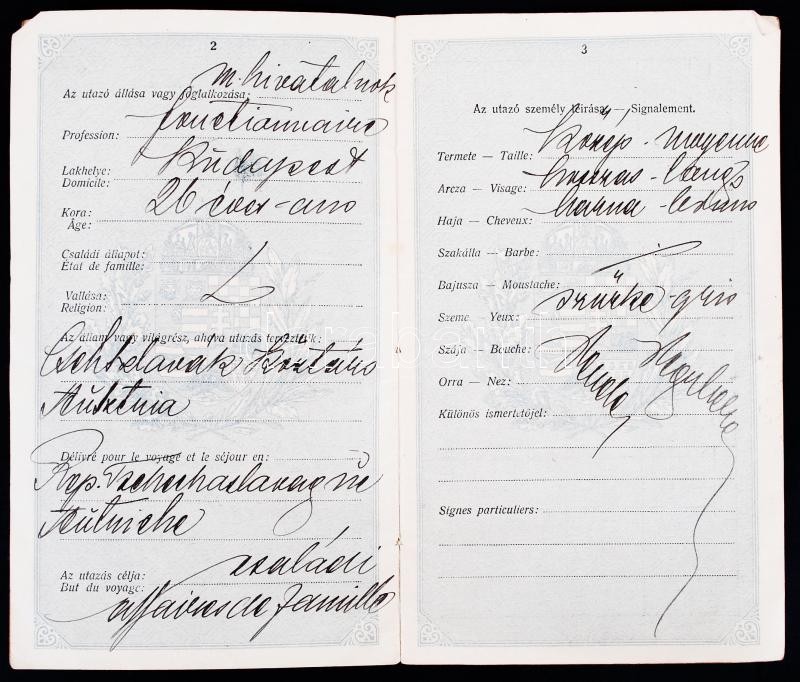 2
Az utazó állása vagy foglalkozása: m. hivatalnok
Profession: fonctionnaire
Lakhelye: Budapest
Domicile:
Kora: 26 éves - ans
Âge:
Családi állapot:
État de famille:
Vallása:
Religion:
Az állam vagy világrész, ahova utazás terveztetik:
Csehszlovák Köztárs
Ausztria
Délivré pour le voyage et le séjour en:
Rep. Tschechoslovaquie
Autriche
Az utazás célja: családi
But du voyage: affaires de famille
3
Az utazó személy leírása. — Signalement.
Termete — Taille: közép - moyenne
Arcza — Visage: hosszas - long
Haja — Cheveux: barna -
Szakálla — Barbe:
Bajusza — Moustache:
Szeme — Yeux: szürke - gris
Szája — Bouche:
Orra — Nez:
Különös ismertetőjel:
Signes particuliers: